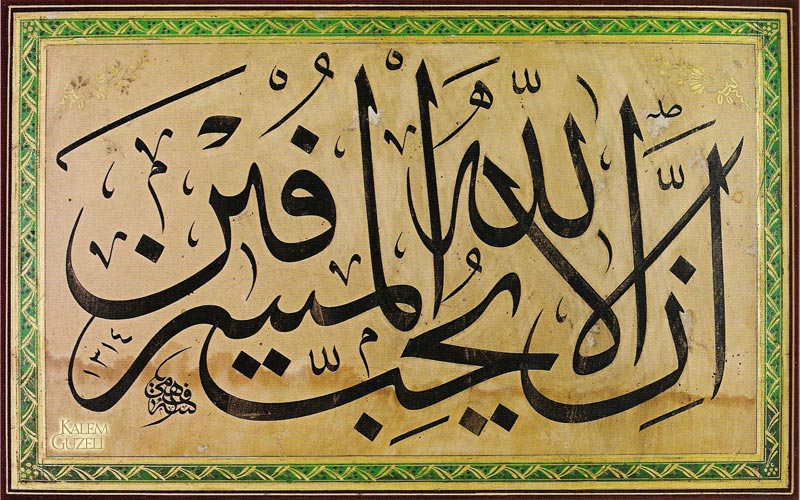 اِنَّ اللّٰهَ لَا يُحِبُّ الْمُسْرِفِينَ
١٣١٤
KALEM
GÜZELİ